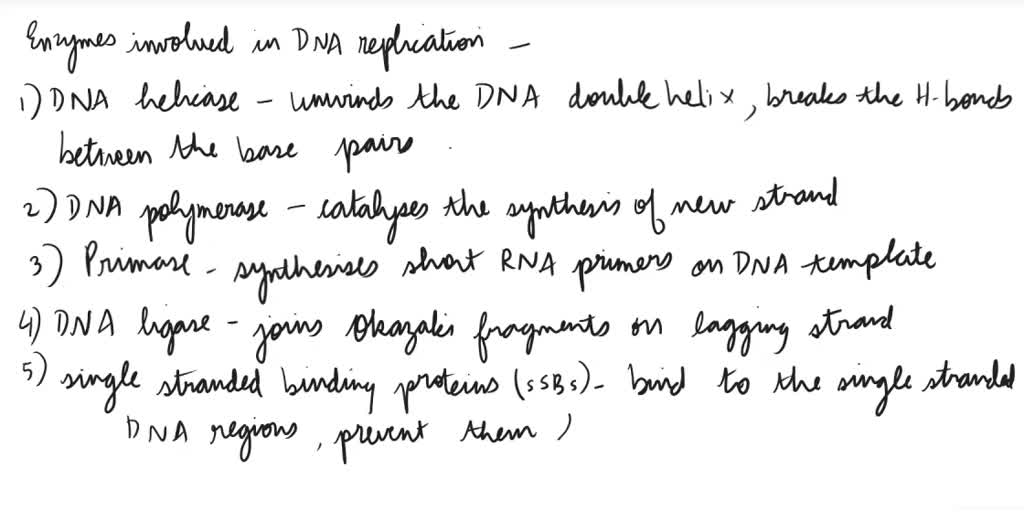 Enzymes involved in DNA replication -
1) DNA helicase - unwinds the DNA double helix, breaks the H-bonds
between the base pairs.
2) DNA polymerase - catalyses the synthesis of new strand
3) Primase - synthesises short RNA primers on DNA template
4) DNA ligase - joins Okazaki fragments on lagging strand
5) single stranded binding proteins (SSBs) - bind to the single stranded
DNA regions, prevent them )